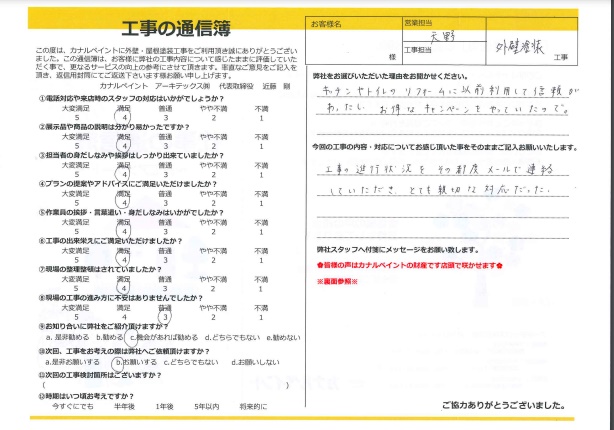 工事の通信簿
この度は、カナルペイントに外壁・屋根塗装工事をご利用頂き誠にありがとうござい
ました。この通信簿は、お客様に弊社の工事内容について感じたままに評価していた
だく事で、更なるサービスの向上の参考にさせて頂きます。率直なご意見をご記入を
頂き、返信用封筒にてご返送下さいます様お願い申し上げます。
カナルペイント アーキテックス㈱ 代表取締役 近藤 剛
①電話対応や来店時のスタッフの対応はいかがでしょうか?
大変満足 満足 普通 やや不満 不満
5 4 3 2 1
②展示品や商品の説明は分かり易かったですか?
大変満足 満足 普通 やや不満 不満
5 4 3 2 1
③担当者の身だしなみや挨拶はしっかり出来ていましたか?
大変満足 満足 普通 やや不満 不満
5 4 3 2 1
④プランの提案やアドバイスにご満足いただけましたか?
大変満足 満足 普通 やや不満 不満
5 4 3 2 1
⑤作業員の挨拶・言葉遣い・身だしなみはいかがでしたか?
大変満足 満足 普通 やや不満 不満
5 4 3 2 1
⑥工事の出来栄えにご満足いただけましたか?
大変満足 満足 普通 やや不満 不満
5 4 3 2 1
⑦現場の整理整頓はされていましたか?
大変満足 満足 普通 やや不満 不満
5 4 3 2 1
⑧現場の工事の進み方に不安はありませんでしたか?
大変満足 満足 普通 やや不満 不満
5 4 3 2 1
⑨お知り合いに弊社をご紹介頂けますか?
a.是非勧める b.勧める c.機会があれば勧める d.どちらでもない e.勧めない
⑩次回、工事をお考えの際は弊社へご依頼頂けますか?
a.是非お願いする b.お願いする c.どちらでもない d.お願いしない
⑪次回の工事検討箇所はございますか?
( )
⑫時期はいつ頃お考えですか?
今すぐにでも 半年後 1年後 5年以内 将来的に
お客様名
様
営業担当
天野
工事担当
外壁塗装
工事
弊社をお選びいただいた理由をお聞かせください。
キッチンやトイレのリフォームに以前利用して信頼が
あったし、お得なキャンペーンをやっていたので。
今回の工事の内容・対応についてお感じ頂いた事をそのままご記入お願いいたします。
工事の進行状況をその都度メールで連絡
していただき とても親切な対応だった。
弊社スタッフへ付箋にメッセージをお願い致します。
✿皆様の声はカナルペイントの財産です店頭で咲かせます✿
※裏面参照※
ご協力ありがとうございました。